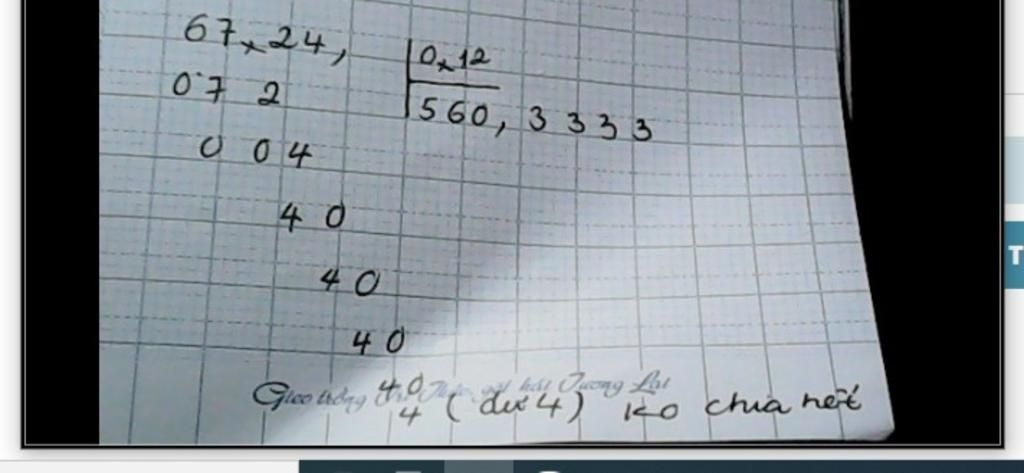 67,24, 0,12
07 2 560, 3 3 3 3
0 04
40
40
40
40
Gieo trồng Tri Thức, gặt hái Tương Lai
4 (dư 4) ko chia hết
T